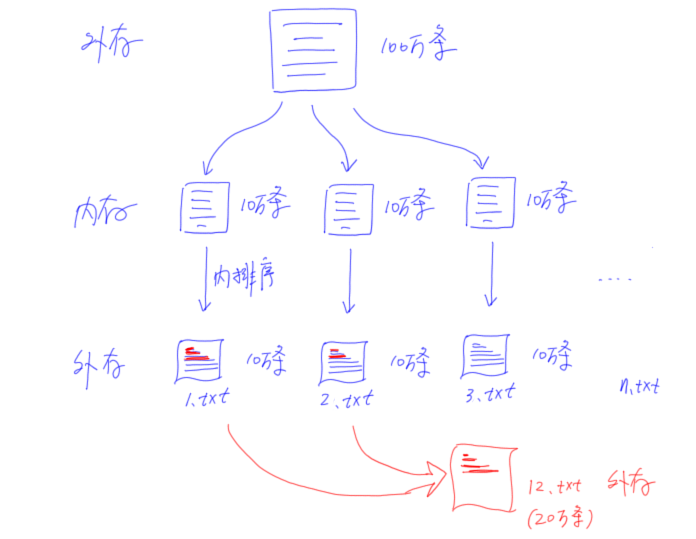 外存 100万条
内存 10万条 10万条 10万条
内排序 ....
外存 10万条 10万条 10万条
1.txt 2.txt 3.txt n.txt
12.txt 外存
(20万条)